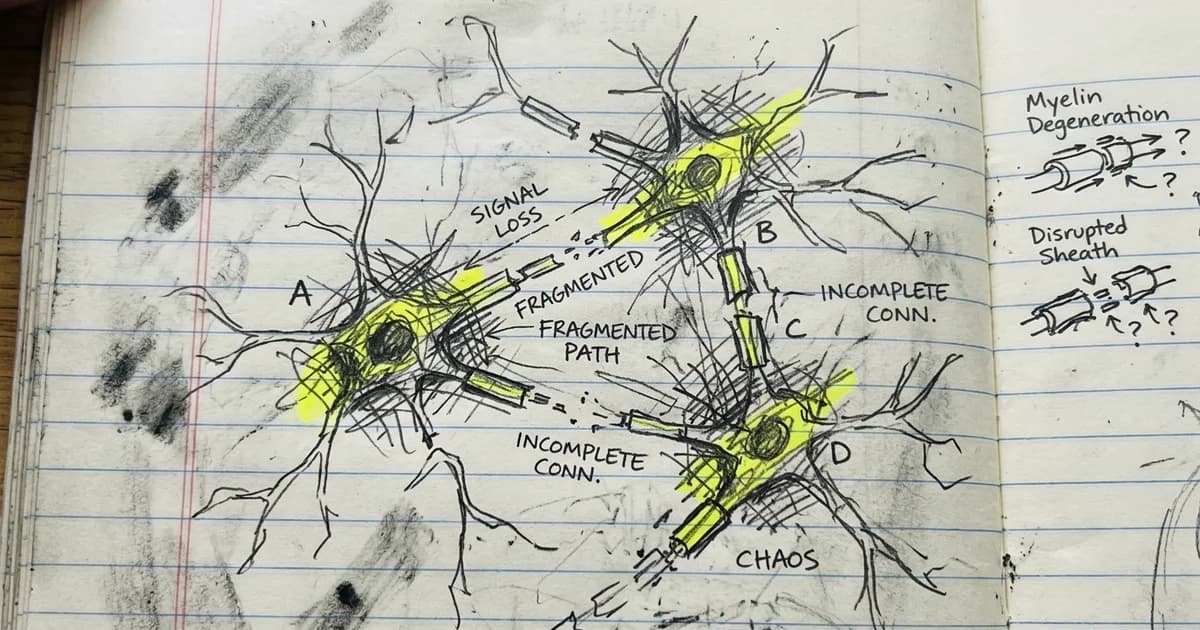 SIGNAL
LOSS
A
B
FRAGMENTED
INCOMPLETE
CONN.
FRAGMENTED
PATH
C
INCOMPLETE
CONN.
D
CHAOS
Myelin
Degeneration
?
?
Disrupted
Sheath
?
?